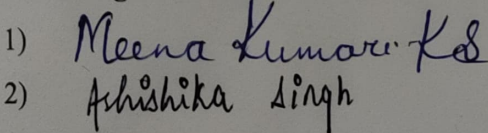 1) Meena Kumari. K S
2) Ashishika Singh